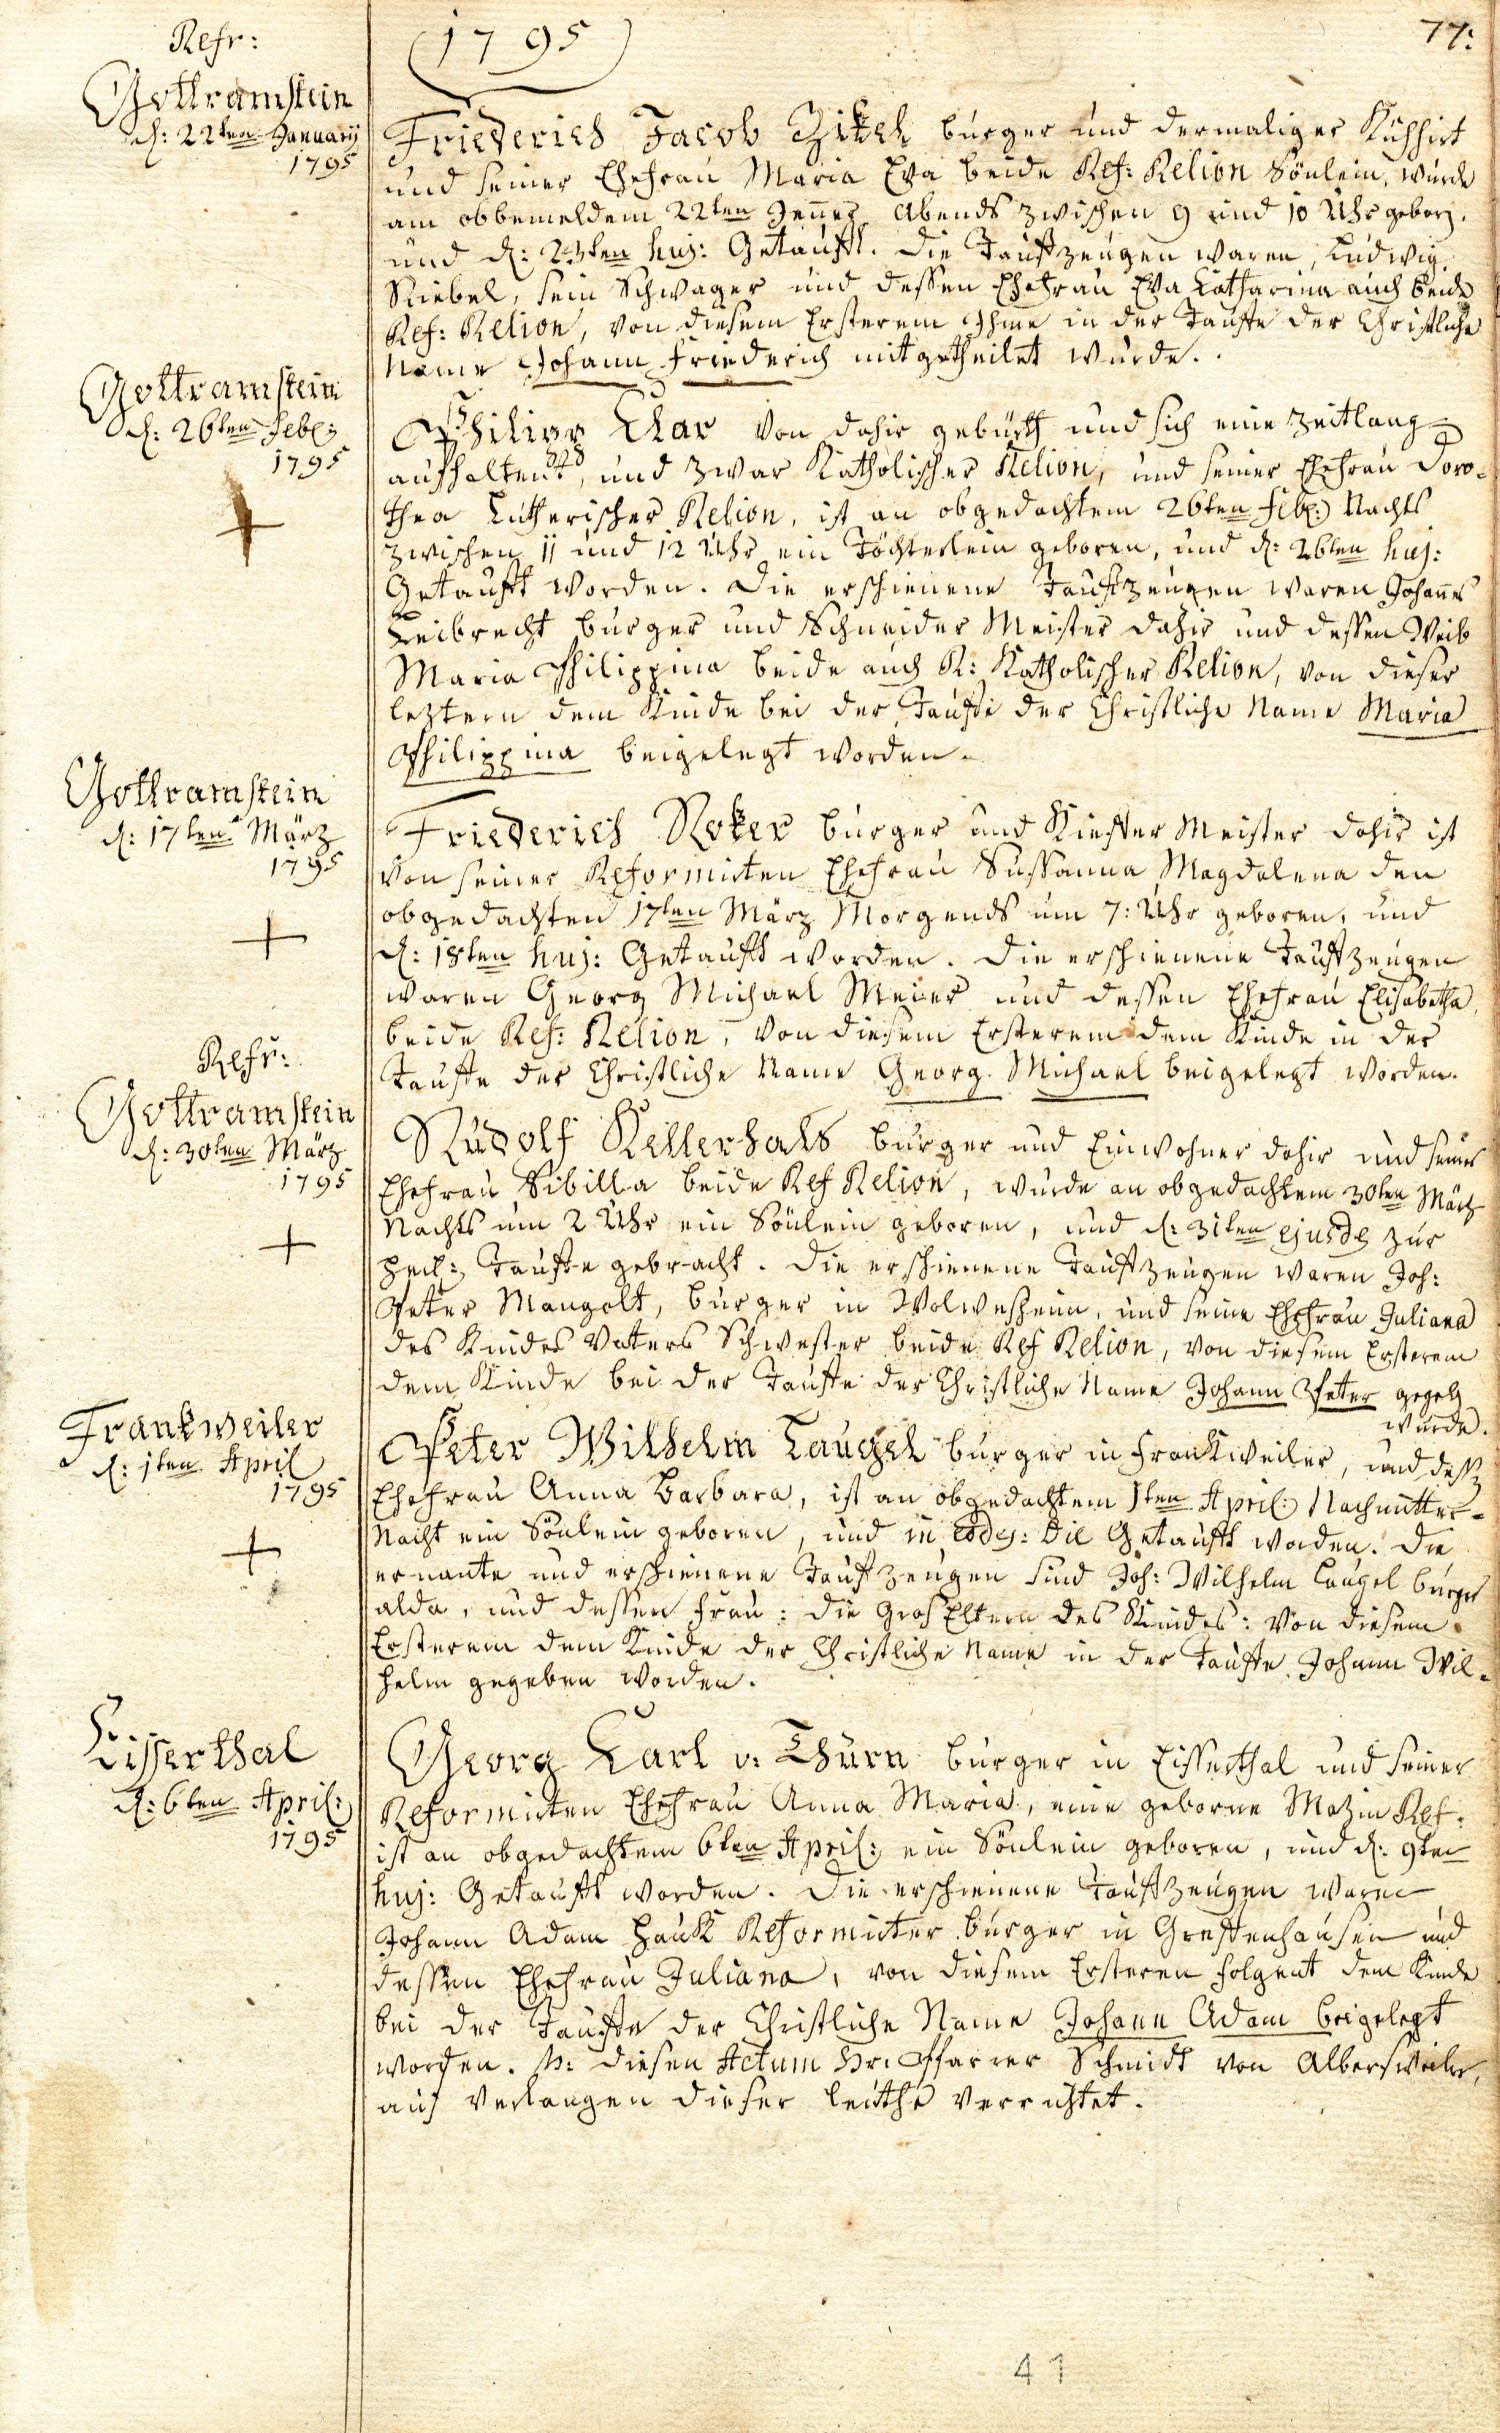 (1795)
77:
Refr:
Gottramstein
d: 22ten January
1795
Friederich Jacob Zikel burger und dermaliger Kühhirt
und seiner Ehefrau Maria Eva beide Ref: Relion Sönlein, wurde
am obbemeldem 22ten Jener Abends zwischen 9 und 10 Uhr geborn.
und d: 23ten huj: Getaufft. Die Taufzeugen waren, Ludwig
Riebel, sein Schwager und dessen Ehefrau Eva Catharina auch beide
Ref: Relion, von diesem Ersterem Ihme in der Tauffe der Christliche
Name Johann Friederich mitgetheilet wurde.
Gottramstein
d: 26ten Feb:
1795
Philipp Clar von dahir gebürth und sich eine Zeitlang
aufhaltend, und zwar Katholischer Relion, und seiner Ehefrau Doro-
thea Lutherischer Relion, ist an obgedachtem 26ten Feb: Nachts
zwischen 11 und 12 Uhr ein Töchterlein geboren, und d: 26ten huj:
Getaufft worden. Die erschienene Taufzeugen waren Johannes
Leibrecht burger und Schneider Meister dahir und dessen Weib
Maria Philippina beide auch R: Katholischer Relion, von dieser
leztern dem Kinde bei der Tauffe der Christliche Name Maria
Philippina beigelegt worden.
Gottramstein
d: 17ten März
1795
Friederich Roker burger und Kieffer Meister dahir ist
von seiner Reformirten Ehefrau Sussanna Magdalena den
obgedachten 17ten März Morgends um 7: Uhr geboren, und
d: 18ten huj: Getaufft worden. Die erschienene Taufzeugen
waren Georg Michael Meier und dessen Ehefrau Elisabetha,
beide Ref: Relion, von diesem Ersterem dem Kinde in der
Tauffe der Christliche Name Georg Michael beigelegt worden.
Refr:
Gottramstein
d: 30ten März
1795
Rudolf Kellerhals burger und Einwohner dahir und seiner
Ehefrau Sibilla beide Ref Relion, wurde an obgedachtem 30ten März
Nachts um 2 Uhr ein Sönlein geboren, und d: 31ten ejusd zur
Heil: Tauffe gebracht. Die erschienene Taufzeugen waren Joh:
Peter Mangolt, burger in Wolwesheim, und seine Ehefrau Juliana
des Kindes Vaters Schwester beide Ref Relion, von diesem Ersterem
dem Kinde bei der Tauffe der Christliche Name Johann Peter gegeb
wurde.
Frankweiler
d: 1ten April
1795
Peter Wilhelm Laugel burger in Frankweiler, und dess
Ehefrau Anna Barbara, ist an obgedachtem 1ten April: Nachmitter-
Nacht ein Sönlein geboren, und in eod: Die Getaufft worden. Die
ernante und erschienene Taufzeugen sind Joh: Wilhelm Laugel burger
alda, und dessen Frau: die Gros Eltern des Kindes: Von diesem
Ersterem dem Kinde der Christliche Name in der Tauffe Johann Wil-
helm gegeben worden.
Eisserthal
d: 6ten April:
1795
Georg Karl v: Thurn burger in Eisserthal und seiner
Reformirten Ehefrau Anna Maria, eine geborne Mazin Ref.
ist an obgedachtem 6ten April: ein Sönlein geboren, und d: 9ten
huj: Getaufft worden. Die erschienene Taufzeugen waren
Johann Adam Hauk Reformirter burger in Greffenhausen und
dessen Ehefrau Juliana, von diesem Ersteren folgent dem Kinde
bei der Tauffe der Christliche Name Johann Adam beigelegt
worden. N: diesen Actum Hr: Pfarrer Schmidt von Albersweiler,
auf Verlangen dieser leuthe verrichtet.
41